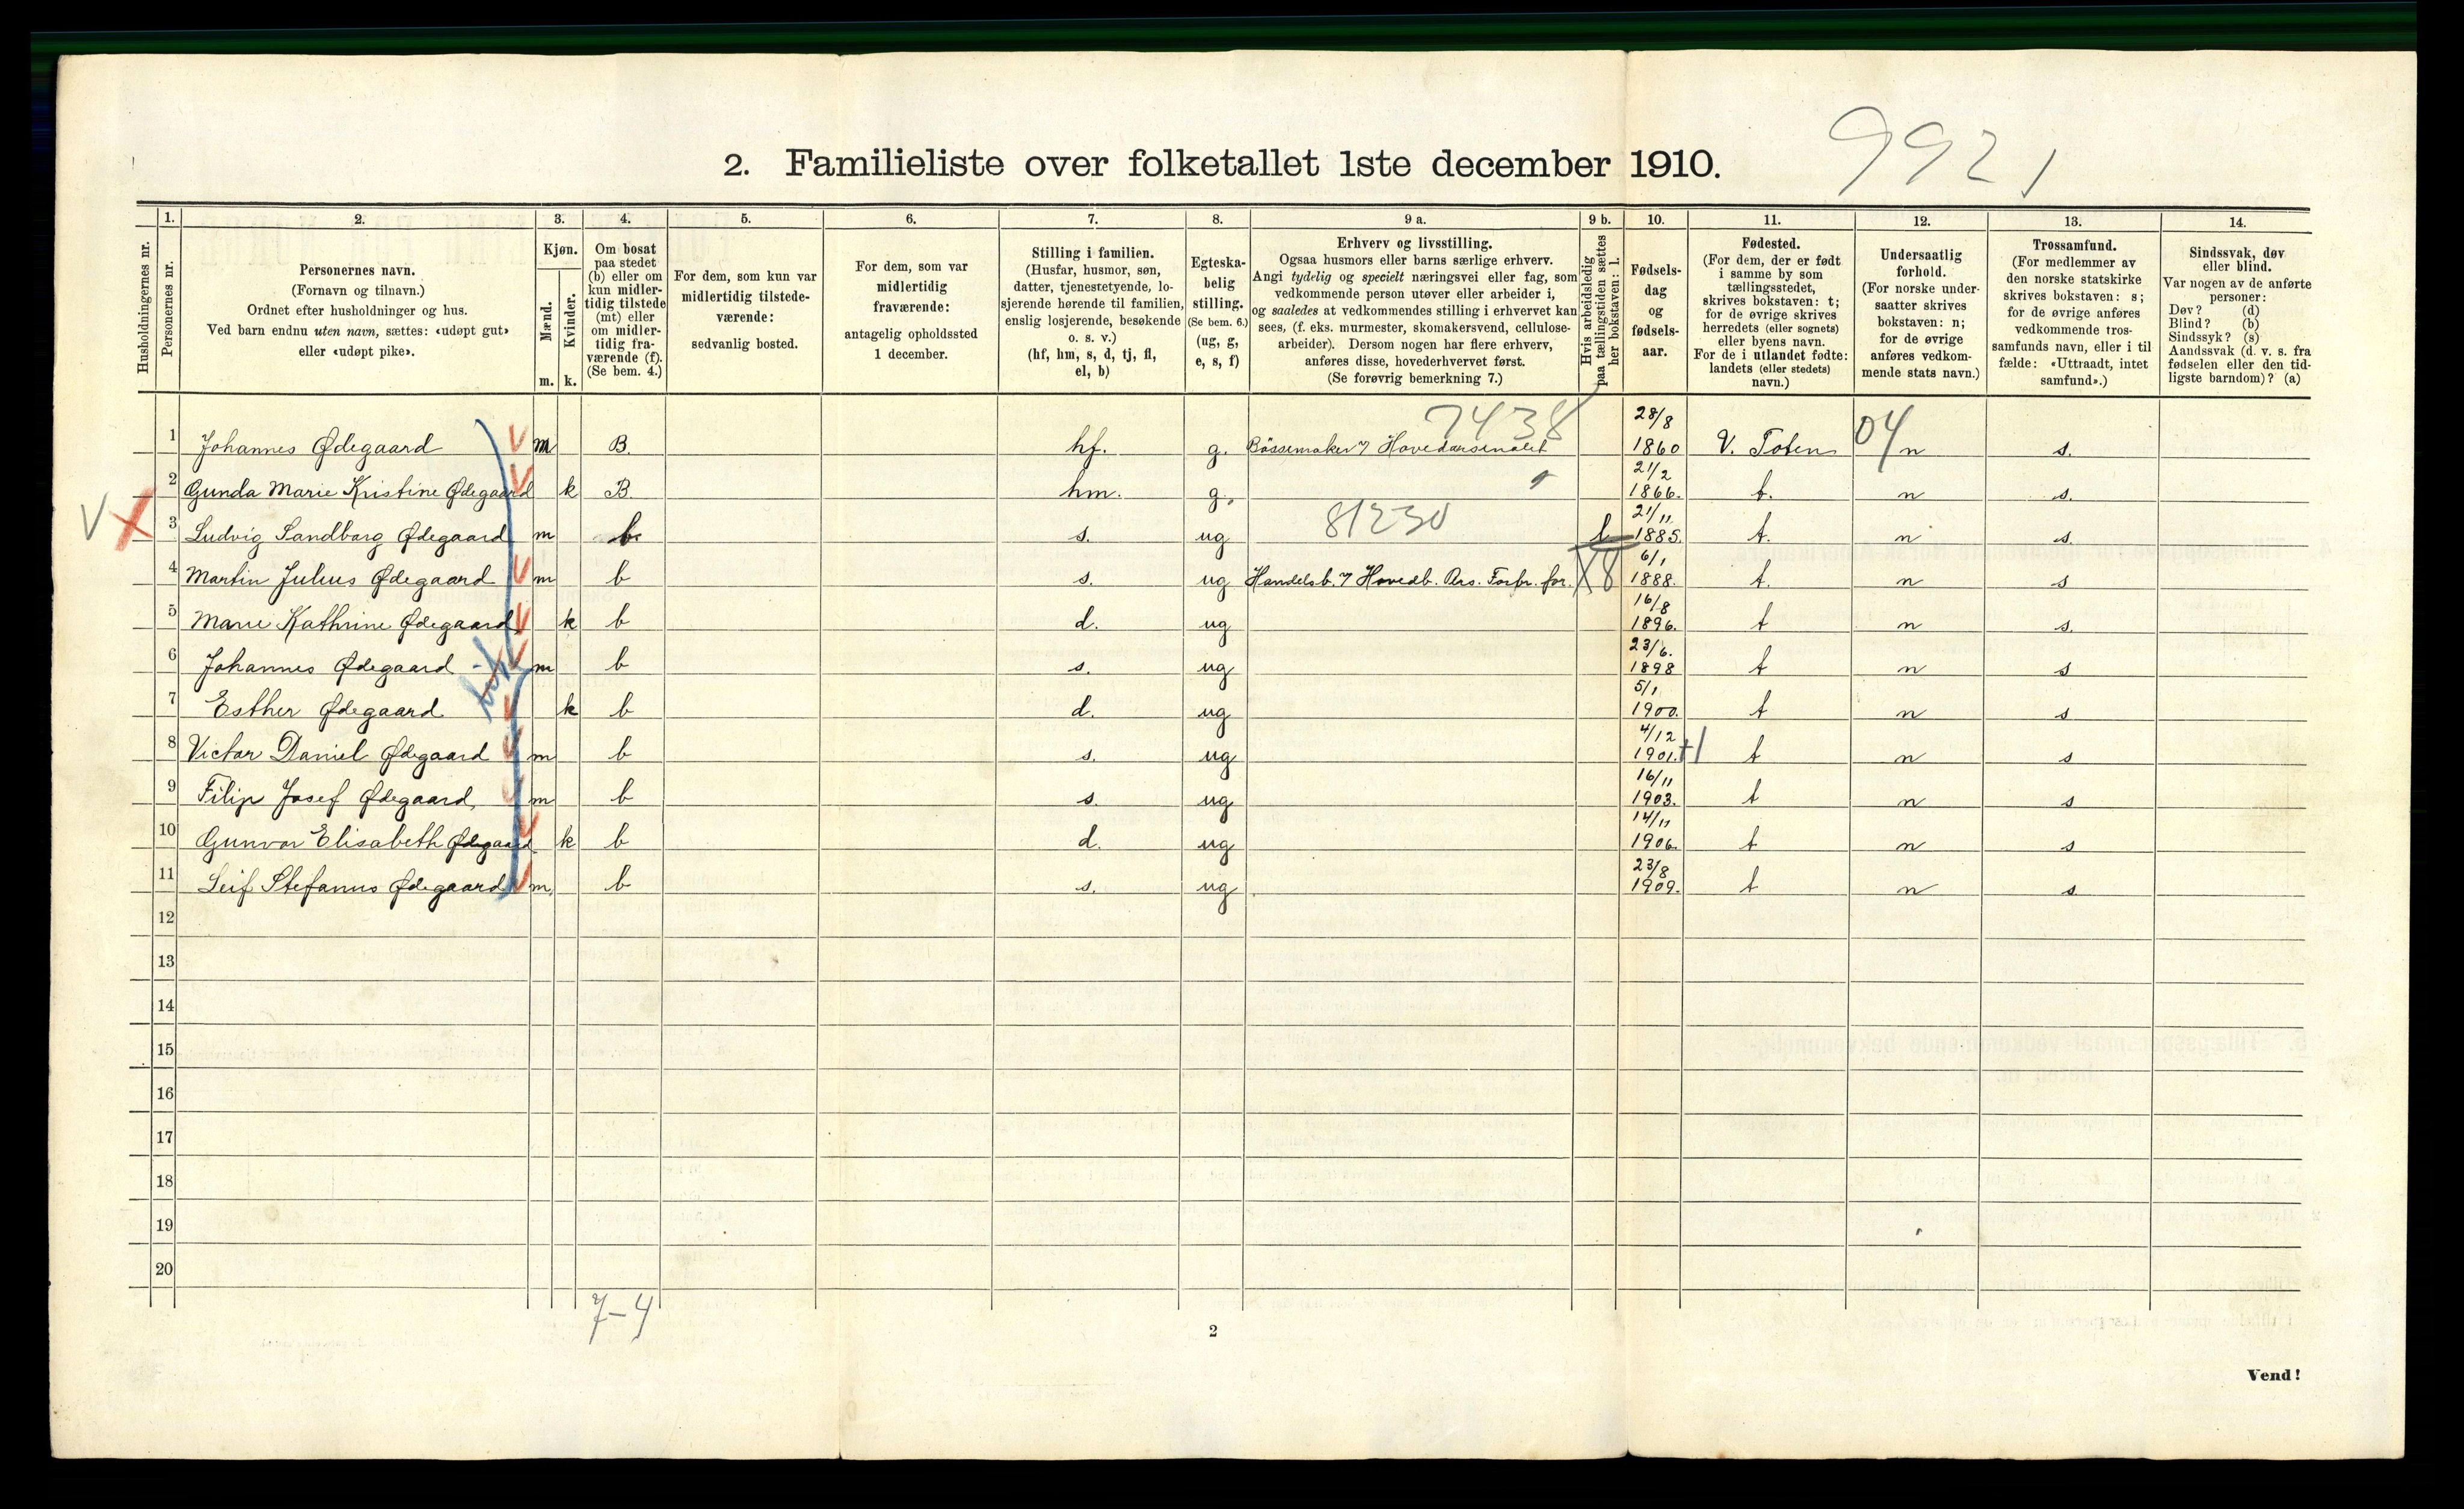 9921
2. Familieliste over folketallet 1ste december 1910.
Husholdningernes nr.
1. Personernes nr.
2. Personernes navn. (Fornavn og tilnavn.) Ordnet efter husholdninger og hus. Ved barn endnu uten navn, sættes: «udøpt gut» eller «udøpt pike».
3. Kjøn. Mænd. m. Kvinder. k.
4. Om bosat paa stedet (b) eller om kun midlertidig tilstede (mt) eller om midlertidig fraværende (f). (Se bem. 4.)
5. For dem, som kun var midlertidig tilstedeværende: sedvanlig bosted.
6. For dem, som var midlertidig fraværende: antagelig opholdssted 1 december.
7. Stilling i familien. (Husfar, husmor, søn, datter, tjenestetyende, losjerende hørende til familien, enslig losjerende, besøkende o. s. v.) (hf, hm, s, d, tj, fl, el, b)
8. Egteskabelig stilling. (Se bem. 6.) (ug, g, e, s, f)
9 a. Erhverv og livsstilling. Ogsaa husmors eller barns særlige erhverv. Angi tydelig og specielt næringsvei eller fag, som vedkommende person utøver eller arbeider i, og saaledes at vedkommendes stilling i erhvervet kan sees, (f. eks. murmester, skomakersvend, cellulosearbeider). Dersom nogen har flere erhverv, anføres disse, hovederhvervet først. (Se forøvrig bemerkning 7.)
9 b. Hvis arbeidsledig paa tællingstiden sættes her bokstaven: l.
10. Fødselsdag og fødselsaar.
11. Fødested. (For dem, der er født i samme by som tællingsstedet, skrives bokstaven: t; for de øvrige skrives herredets (eller sognets) eller byens navn. For de i utlandet fødte: landets (eller stedets) navn.)
12. Undersaatlig forhold. (For norske undersaatter skrives bokstaven: n; for de øvrige anføres vedkommende stats navn.)
13. Trossamfund. (For medlemmer av den norske statskirke skrives bokstaven: s; for de øvrige anføres vedkommende trossamfunds navn, eller i tilfælde: «Uttraadt, intet samfund».)
14. Sindssvak, døv eller blind. Var nogen av de anførte personer: Døv? (d) Blind? (b) Sindssyk? (s) Aandssvak (d. v. s. fra fødselen eller den tidligste barndom)? (a)
7438
1 Johannes Ødegaard m B. hf. g. Bøssemaker v Hovedarsenalet 28/8 1860 V. Toten 04 n s.
2 Gunda Marie Kristine Ødegaard k B. hm. g. 21/2 1866. t. n s.
81230
V X 3 Ludvig Sandborg Ødegaard m b. s. ug l 21/11 1885. t. n s.
4 Martin Julius Ødegaard m b s. ug Handelsb. v Hovedb. Ars. Forbr. for. X8 6/1 1888. t. n s
5 Marie Kathrine Ødegaard k b d. ug 16/8 1896. t n s.
6 Johannes Ødegaard m b s. ug 23/6. 1898 t n s
7 Esther Ødegaard k b d. ug 5/1 1900. t n s
8 Victor Daniel Ødegaard m b s. ug 4/12 1901. +1 t n s
9 Filip Josef Ødegaard, m b s. ug 16/11 1903. t n s
10 Gunvor Elisabeth Ødegaard k b d. ug 14/11 1906. t n s
11 Leif Stefanus Ødegaard m. b s. ug 23/8 1909. t n s
12
13
14
15
16
17
18
19
20
7-4
2
Vend!